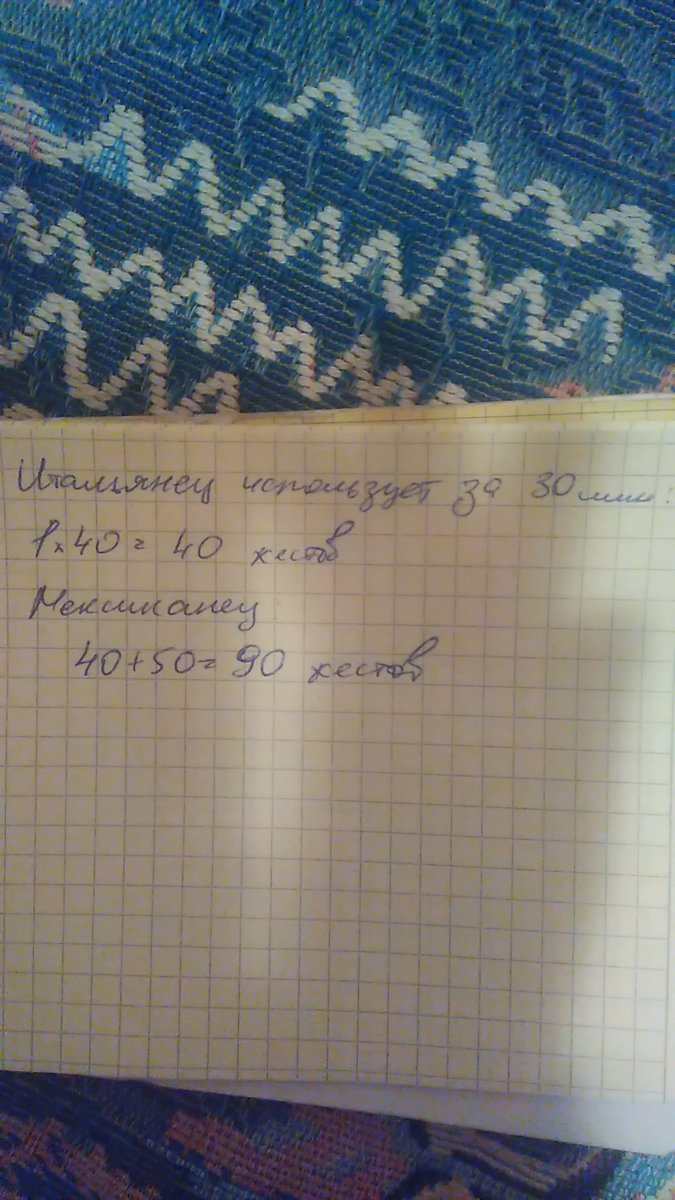 Итальянец использует за 30 мин:
1 × 40 = 40 жестов
Мексиканец
40 + 50 = 90 жестов